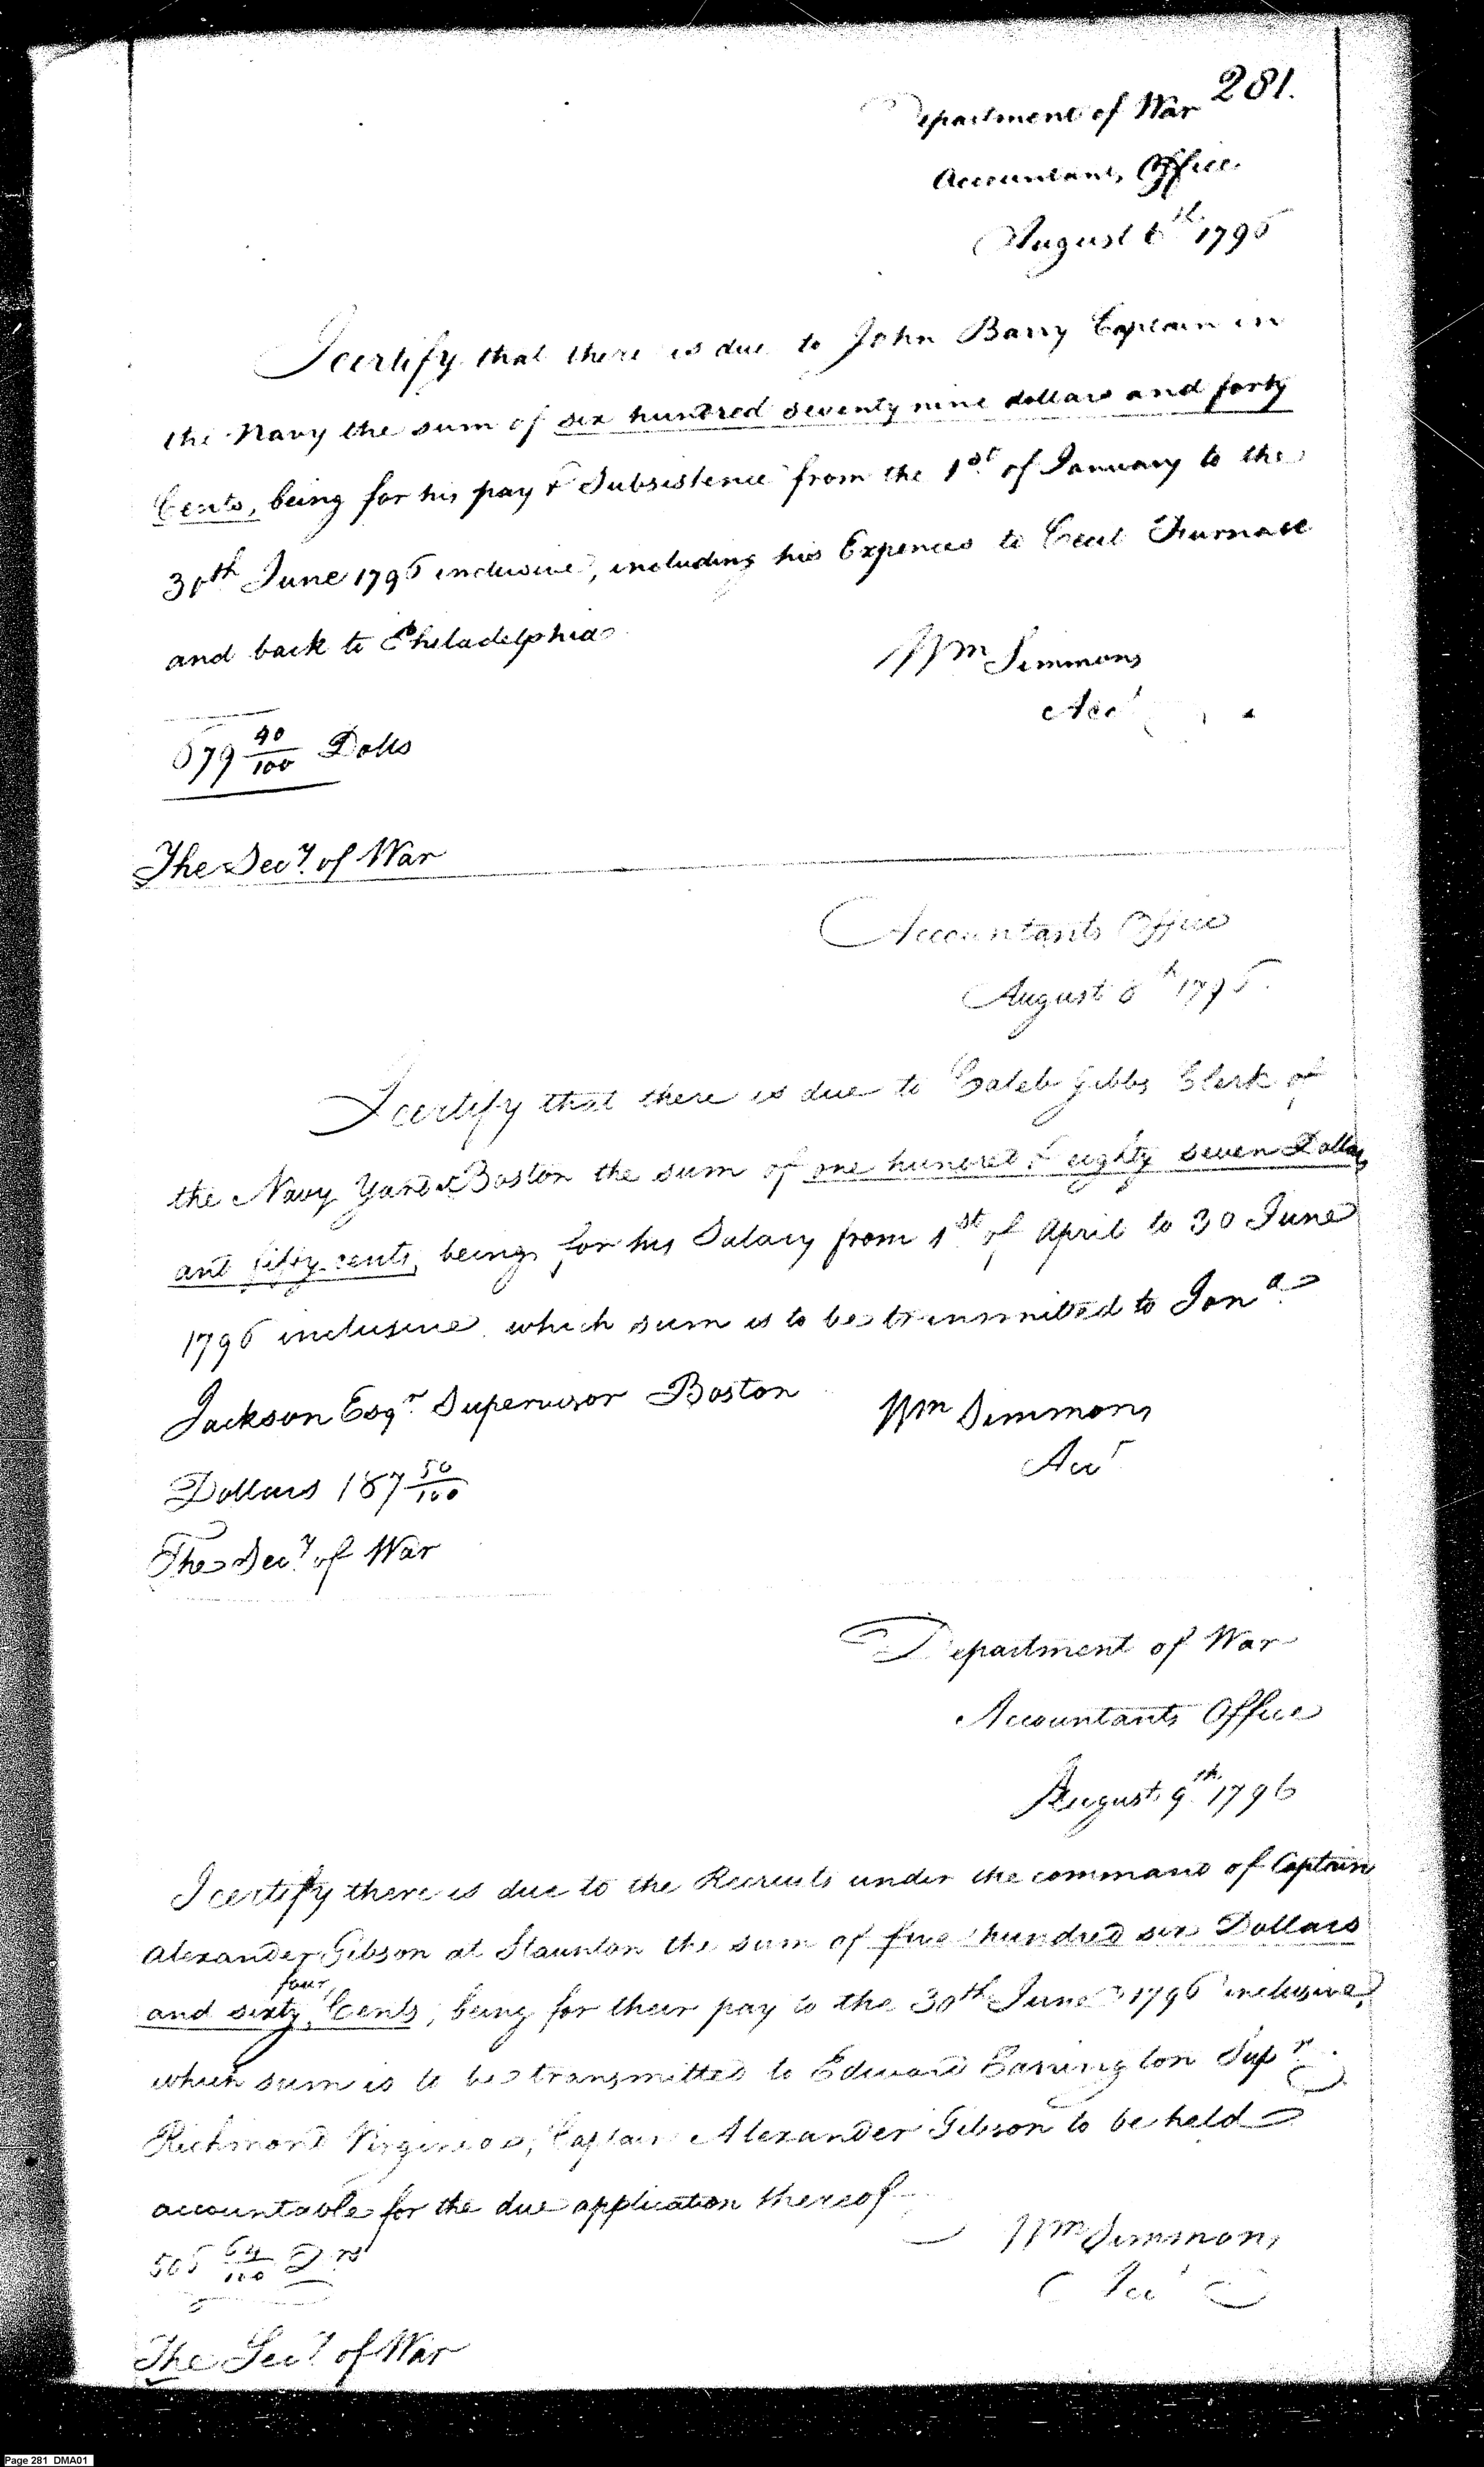 281.
Department of War
Accountants Office
August 6th 1796
I certify that there is due to John Barry Captain in
the Navy the sum of six hundred seventy nine dollars and forty
Cents, being for his pay & Subsistence from the 1st of January to the
30th June 1796 inclusive, including his Expences to Cecil Furnace
and back to Philadelphia
Wm Simmons
Acct
679 40/100 Dolls
The Secy of War
Accountants Office
August 8th 1796.
I certify that there is due to Caleb Gibbs Clerk of
the Navy Yard Boston the sum of one hundred & eighty seven Dollars
and fifty cents, being for his Salary from 1st of April to 30 June
1796 inclusive which sum is to be transmitted to Jona
Jackson Esqr Supervisor Boston
Wm Simmons
Acct
Dollars 187 50/100
The Secy of War
Department of War
Accountants Office
August 9th 1796
I certify there is due to the Recruits under the command of Captain
Alexander Gibson at Staunton the sum of five hundred six Dollars
and sixty four Cents, being for their pay to the 30th June 1796 inclusive,
which sum is to be transmitted to Edward Carrington Supr
Richmond Virginia, Captain Alexander Gibson to be held
accountable for the due application thereof
Wm Simmons
Acct
506 64/100 Drs
The Secy of War
Page 281 DMA01